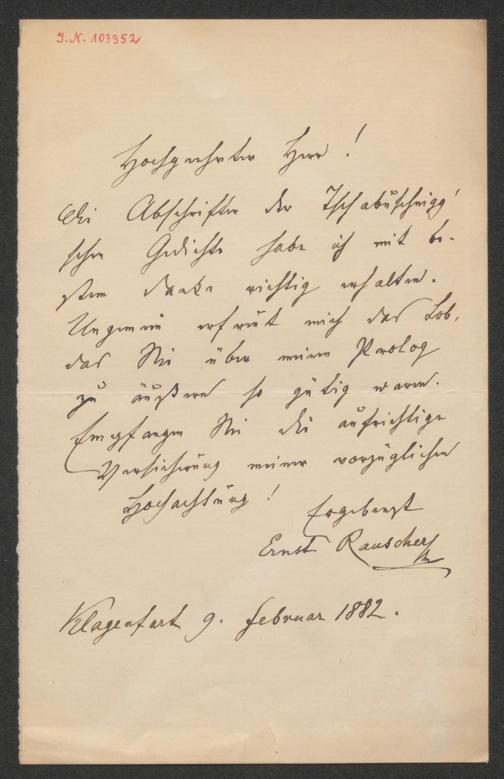 J. N. 103352
Hochgeehrter Herr!
Die Abschriften der Tschabuschnigg'
schen Gedichte habe ich mit be-
stem Danke richtig erhalten.
Ungemein erfreut mich das Lob,
das Sie über meinen Prolog
zu äußern so gütig waren.
Empfangen Sie die aufrichtige
Versicherung meiner vorzüglichen
Hochachtung!
Ergebenst
Ernst Rauscher
Klagenfurt 9. Februar 1882.